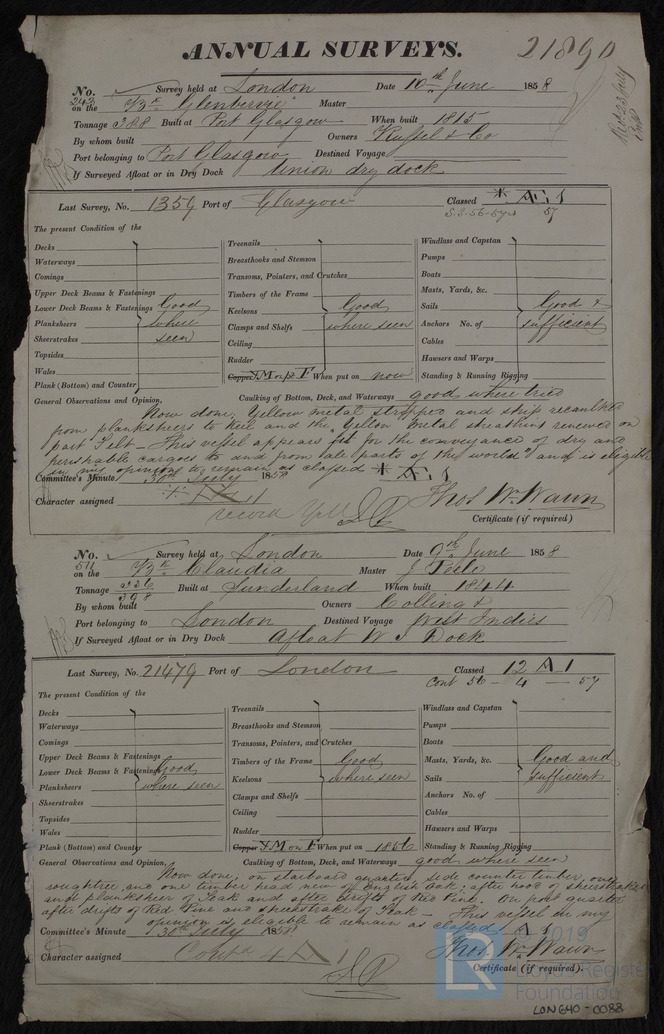 ANNUAL SURVEYS.
21890
No. 243 Survey held at London Date 10th June 1858
on the Glenbervie Master
Tonnage 388 Built at Port Glasgow When built 1815
By whom built Owners Russel & Co
Port belonging to Port Glasgow Destined Voyage
If Surveyed Afloat or in Dry Dock Union dry dock
Last Survey, No. 1359 Port of Glasgow Classed
The present Condition of the
Decks
Waterways
Comings
Upper Deck Beams & Fastenings
Lower Deck Beams & Fastenings Good
Planksheers where
Sheerstrakes seen
Topsides
Wales
Plank (Bottom) and Counter
Treenails
Breasthooks and Stemson
Transoms, Pointers, and Crutches
Timbers of the Frame
Keelsons Good
Clamps and Shelfs where seen
Ceiling
Rudder
Copper Y.M or F When put on now
Windlass and Capstan
Pumps
Boats
Masts, Yards, &c.
Sails Good &
Anchors No. of sufficient
Cables
Hawsers and Warps
Standing & Running Rigging
General Observations and Opinion, Caulking of Bottom, Deck, and Waterways good where tried
Now done, Yellow metal stripped and ship recaulked
from planksheers to keel and the Yellow Metal sheathing renewed on
part Felt - This vessel appears fit for the conveyance of dry and
perishable cargoes to and from all parts of the world and is eligible
in my opinion to remain as classed
Committee's Minute 30th July 1858
Character assigned
record
Thos Wm Wawn
Certificate (if required)
No. 511 Survey held at London Date 9th June 1858
on the Claudia Master J Peele
Tonnage 336 398 Built at Sunderland When built 1844
By whom built Owners Colling &
Port belonging to London Destined Voyage West Indies
If Surveyed Afloat or in Dry Dock Afloat W I Dock
Last Survey, No. 21479 Port of London Classed 12 A 1
Cont 56 - 4 - 57
The present Condition of the
Decks
Waterways
Comings
Upper Deck Beams & Fastenings
Lower Deck Beams & Fastenings Good
Planksheers where seen
Sheerstrakes
Topsides
Wales
Plank (Bottom) and Counter
Treenails
Breasthooks and Stemson
Transoms, Pointers, and Crutches
Timbers of the Frame Good
Keelsons where seen
Clamps and Shelfs
Ceiling
Rudder
Copper Y.M or F When put on 1856
Windlass and Capstan
Pumps
Boats
Masts, Yards, &c. Good and
Sails sufficient
Anchors No. of
Cables
Hawsers and Warps
Standing & Running Rigging
General Observations and Opinion, Caulking of Bottom, Deck, and Waterways good where seen
Now done, on starboard quarter, side counter timber, one
roughtree, and one timber head new of English Oak, after hood of sheerstrake
and planksheer of Teak and after drifts of Red Pine. On port quarter
after drifts of Red Pine and sheerstrake of Teak - This vessel in my
opinion is eligible to remain as classed A 1
Committee's Minute 30th July 1858
Character assigned Contd 4 A 1
Thos Wm Wawn
Certificate (if required).
LR © 2019
Lloyd's Register
Foundation
LON640-0088